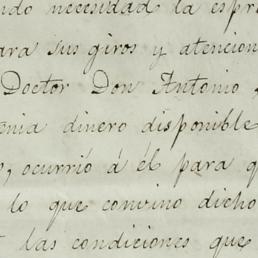 ndo necesidad la espr
ara sus giros y atencion
Doctor Don Antonio
enia dinero disponible
o, ocurrió á él para q
lo que convino dicho
las condiciones que